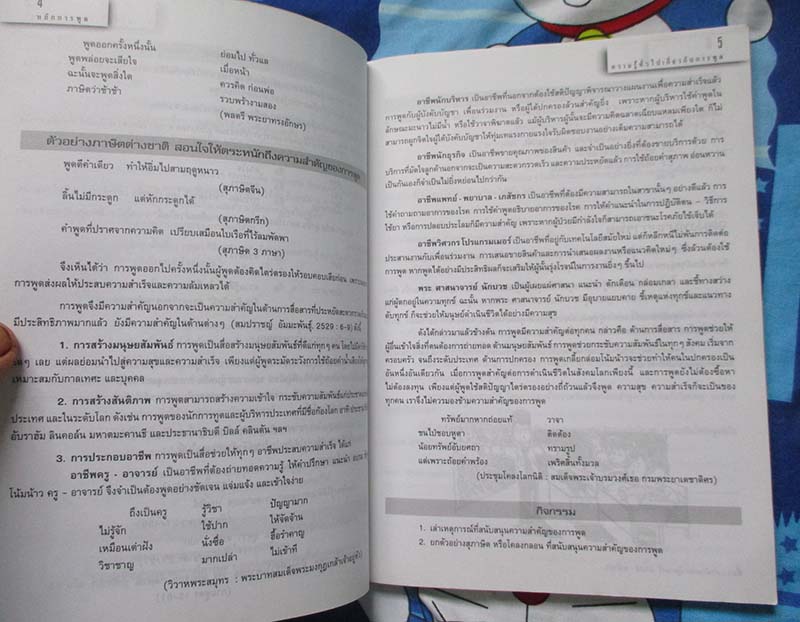 4
หลักการพูด
พูดออกครั้งหนึ่งนั้น ย่อมไป ทั่วแล
พูดพล่อยจะเสียใจ เมื่อหน้า
ฉะนั้นจะพูดสิ่งใด ควรคิด ก่อนพ่อ
ภาษิตว่าช้าช้า รวบพร้างามสอง
(พลตรี พระยาทรงอักษร)
ตัวอย่างภาษิตต่างชาติ สอนใจให้ตระหนักถึงความสำคัญของการพูด
พูดดีคำเดียว ทำให้อิ่มไปสามฤดูหนาว
(สุภาษิตจีน)
ลิ้นไม่มีกระดูก แต่หักกระดูกได้
(สุภาษิตกรีก)
คำพูดที่ปราศจากความคิด เปรียบเสมือนใบเรือที่ไร้ลมพัดพา
(สุภาษิต 3 ภาษา)
จึงเห็นได้ว่า การพูดออกไปครั้งหนึ่งนั้นผู้พูดต้องคิดไตร่ตรองให้รอบคอบเสียก่อน เพราะ
การพูดส่งผลให้ประสบความสำเร็จและความล้มเหลวได้
การพูดจึงมีความสำคัญนอกจากจะเป็นความสำคัญในด้านการสื่อสารที่ประหยัดสะดวกรวดเร็ว
มีประสิทธิภาพมากแล้ว ยังมีความสำคัญในด้านต่างๆ (สมปราชญ์ อัมมะพันธุ์. 2529 : 6-9) ดังนี้
1. การสร้างมนุษยสัมพันธ์ การพูดเป็นสื่อสร้างมนุษยสัมพันธ์ที่ดีแก่ทุกๆ คน โดยไม่
ใดๆ เลย แต่ผลย่อมนำไปสู่ความสุขและความสำเร็จ เพียงแต่ผู้พูดระมัดระวังการใช้ถ้อยคำน้ำเสียงให้
เหมาะสมกับกาลเทศะ และบุคคล
2. การสร้างสันติภาพ การพูดสามารถสร้างความเข้าใจ กระชับความสัมพันธ์แก่ประชาชน
ประเทศ และในระดับโลก ดังเช่น การพูดของนักการทูตและผู้บริหารประเทศที่มีชื่อก้องโลก อาทิ
อับราฮัม ลินคอล์น มหาตมะคานธี และประธานาธิบดี บิลล์ คลินตัน ฯลฯ
3. การประกอบอาชีพ การพูดเป็นสื่อช่วยให้ทุกๆ อาชีพประสบความสำเร็จ ได้แก่
อาชีพครู - อาจารย์ เป็นอาชีพที่ต้องถ่ายทอดความรู้ ให้คำปรึกษา แนะนำ อบรม
โน้มน้าว ครู - อาจารย์ จึงจำเป็นต้องพูดอย่างชัดเจน แจ่มแจ้ง และเข้าใจง่าย
ถึงเป็นครู รู้วิชา ปัญญามาก
ไม่รู้จัก ใช้ปาก ให้จัดจ้าน
เหมือนเต่าฝัง นั่งซื่อ ฮื้อรำคาญ
วิชาชาญ มากเปล่า ไม่เข้าที
(วิวาหพระสมุทร : พระบาทสมเด็จพระมงกุฎเกล้าเจ้าอยู่หัว)
5
ความรู้ทั่วไปเกี่ยวกับการพูด
อาชีพนักบริหาร เป็นอาชีพที่นอกจากต้องใช้สติปัญญาพิจารณาวางแผนงานเพื่อความสำเร็จแล้ว
การพูดกับผู้บังคับบัญชา เพื่อนร่วมงาน หรือผู้ใต้ปกครองล้วนสำคัญยิ่ง เพราะหากผู้บริหารใช้คำพูดใน
ลักษณะมะนาวไม่มีน้ำ หรือใช้วาจาพิฆาตแล้ว แม้ผู้บริหารผู้นั้นจะมีความคิดฉลาดเฉียบแหลมเพียงใด ก็ไม่
สามารถผูกจิตใจผู้ใต้บังคับบัญชาให้ทุ่มเทแรงกายแรงใจรับผิดชอบงานอย่างเต็มความสามารถได้
อาชีพนักธุรกิจ เป็นอาชีพขายคุณภาพของสินค้า และจำเป็นอย่างยิ่งที่ต้องขายบริการด้วย การ
บริการที่มัดใจลูกค้านอกจากจะเป็นความสะดวกรวดเร็ว และความประหยัดแล้ว การใช้ถ้อยคำสุภาพ อ่อนหวาน
เป็นกันเองก็จำเป็นไม่ยิ่งหย่อนไปกว่ากัน
อาชีพแพทย์ - พยาบาล - เภสัชกร เป็นอาชีพที่ต้องมีความสามารถในสาขานั้นๆ อย่างดีแล้ว การ
ใช้คำถามถามอาการของโรค การใช้คำพูดอธิบายอาการของโรค การให้คำแนะนำในการปฏิบัติตน - วิธีการ
ใช้ยา หรือการปลอบประโลมก็มีความสำคัญ เพราะหากผู้ป่วยมีกำลังใจก็สามารถเอาชนะโรคภัยไข้เจ็บได้
อาชีพวิศวกร โปรแกรมเมอร์ เป็นอาชีพที่อยู่กับเทคโนโลยีสมัยใหม่ แต่ก็หลีกหนีไม่พ้นการติดต่อ
ประสานงานกับเพื่อนร่วมงาน การเสนอขายสินค้าและการนำเสนอผลงานหรือแนวคิดใหม่ๆ ซึ่งล้วนต้องใช้
การพูด หากพูดได้อย่างมีประสิทธิผลก็จะเสริมให้ผู้นั้นรุ่งโรจน์ในการงานยิ่งๆ ขึ้นไป
พระ ศาสนาจารย์ นักบวช เป็นผู้เผยแผ่ศาสนา แนะนำ ตักเตือน กล่อมเกลา และชี้ทางสว่าง
แก่ผู้ตกอยู่ในความทุกข์ ฉะนั้น หากพระ ศาสนาจารย์ นักบวช มีอุบายแยบคาย ชี้เหตุแห่งทุกข์และแนวทาง
ดับทุกข์ ก็จะช่วยให้มนุษย์ดำเนินชีวิตได้อย่างมีความสุข
ดังได้กล่าวมาแล้วข้างต้น การพูดมีความสำคัญต่อทุกคน กล่าวคือ ด้านการสื่อสาร การพูดช่วยให้
ผู้อื่นเข้าใจสิ่งที่ตนต้องการถ่ายทอด ด้านมนุษยสัมพันธ์ การพูดช่วยกระชับความสัมพันธ์ในทุกๆ สังคม เริ่มจาก
ครอบครัว จนถึงระดับประเทศ ด้านการปกครอง การพูดเกลี้ยกล่อมโน้มน้าวจะช่วยทำให้คนในปกครองเป็น
อันหนึ่งอันเดียวกัน เมื่อการพูดสำคัญต่อการดำเนินชีวิตในสังคมโลกเพียงนี้ และการพูดยังไม่ต้องซื้อหา
ไม่ต้องลงทุน เพียงแต่ผู้พูดใช้สติปัญญาไตร่ตรองอย่างถี่ถ้วนแล้วจึงพูด ความสุข ความสำเร็จก็จะเป็นของ
ทุกคน เราจึงไม่ควรมองข้ามความสำคัญของการพูด
ทรัพย์มากหากถ่อยแท้ วาจา
ชนไป่ชอบหูตา ติดต้อง
น้อยทรัพย์อับยศถา ทรามรูป
แต่เพราะถ้อยคำพร้อง เพริศสิ้นทั้งมวล
(ประชุมโคลงโลกนิติ : สมเด็จพระเจ้าบรมวงศ์เธอ กรมพระยาเดชาดิศร)
กิจกรรม
1. เล่าเหตุการณ์ที่สนับสนุนความสำคัญของการพูด
2. ยกตัวอย่างสุภาษิต หรือโคลงกลอน ที่สนับสนุนความสำคัญของการพูด